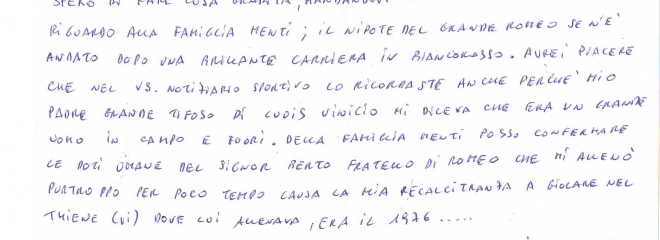 SPERO DI FARE COSA GRADITA, MANDANDOVI
RIGUARDO ALLA FAMIGLIA MENTI; IL NIPOTE DEL GRANDE ROMEO SE N'È
ANDATO DOPO UNA BRILLANTE CARRIERA IN BIANCOROSSO. AUREI PIACERE
CHE NEL VS. NOTIZIARIO SPORTIVO LO RICORDASTE ANCHE PERCHE' MIO
PADRE GRANDE TIFOSO DI LUDIS VINICIO MI DICEVA CHE ERA UN GRANDE
UOMO IN CAMPO E FUORI. DELLA FAMIGLIA MENTI POSSO CONFERMARE
LE DOTI UMANE DEL SIGNOR BERTO FRATELLO DI ROMEO CHE MI ALLENÒ
PURTROPPO PER POCO TEMPO CAUSA LA MIA RECALCITRANZA A GIOCARE NEL
THIENE (VI) DOVE LUI ALLENAVA, ERA IL 1976 .....